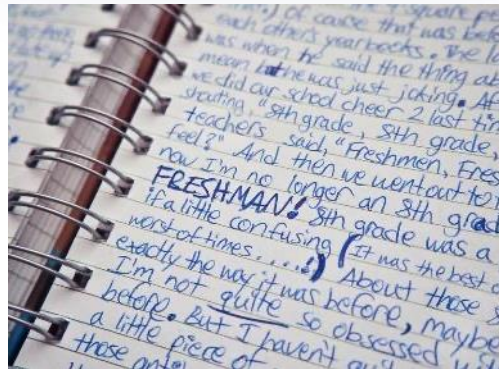 of cause that was bef
each others yearbooks. We la
was when he said the thing a
mean but he was just joking. At
we did our school cheer 2 last tim
shouting, "8th grade, 8th grade,
teachers said, "Freshmen, Fres
feel?" And then we went out to
now I'm no longer an 8th grad
FRESHMAN! 8th grade was a
if a little confusing (It was the best o
worst of times. . . .!) About those s
exactly the way it was before, maybe
I'm not quite so obsessed wit
before. But I haven't qui
a little piece of
those